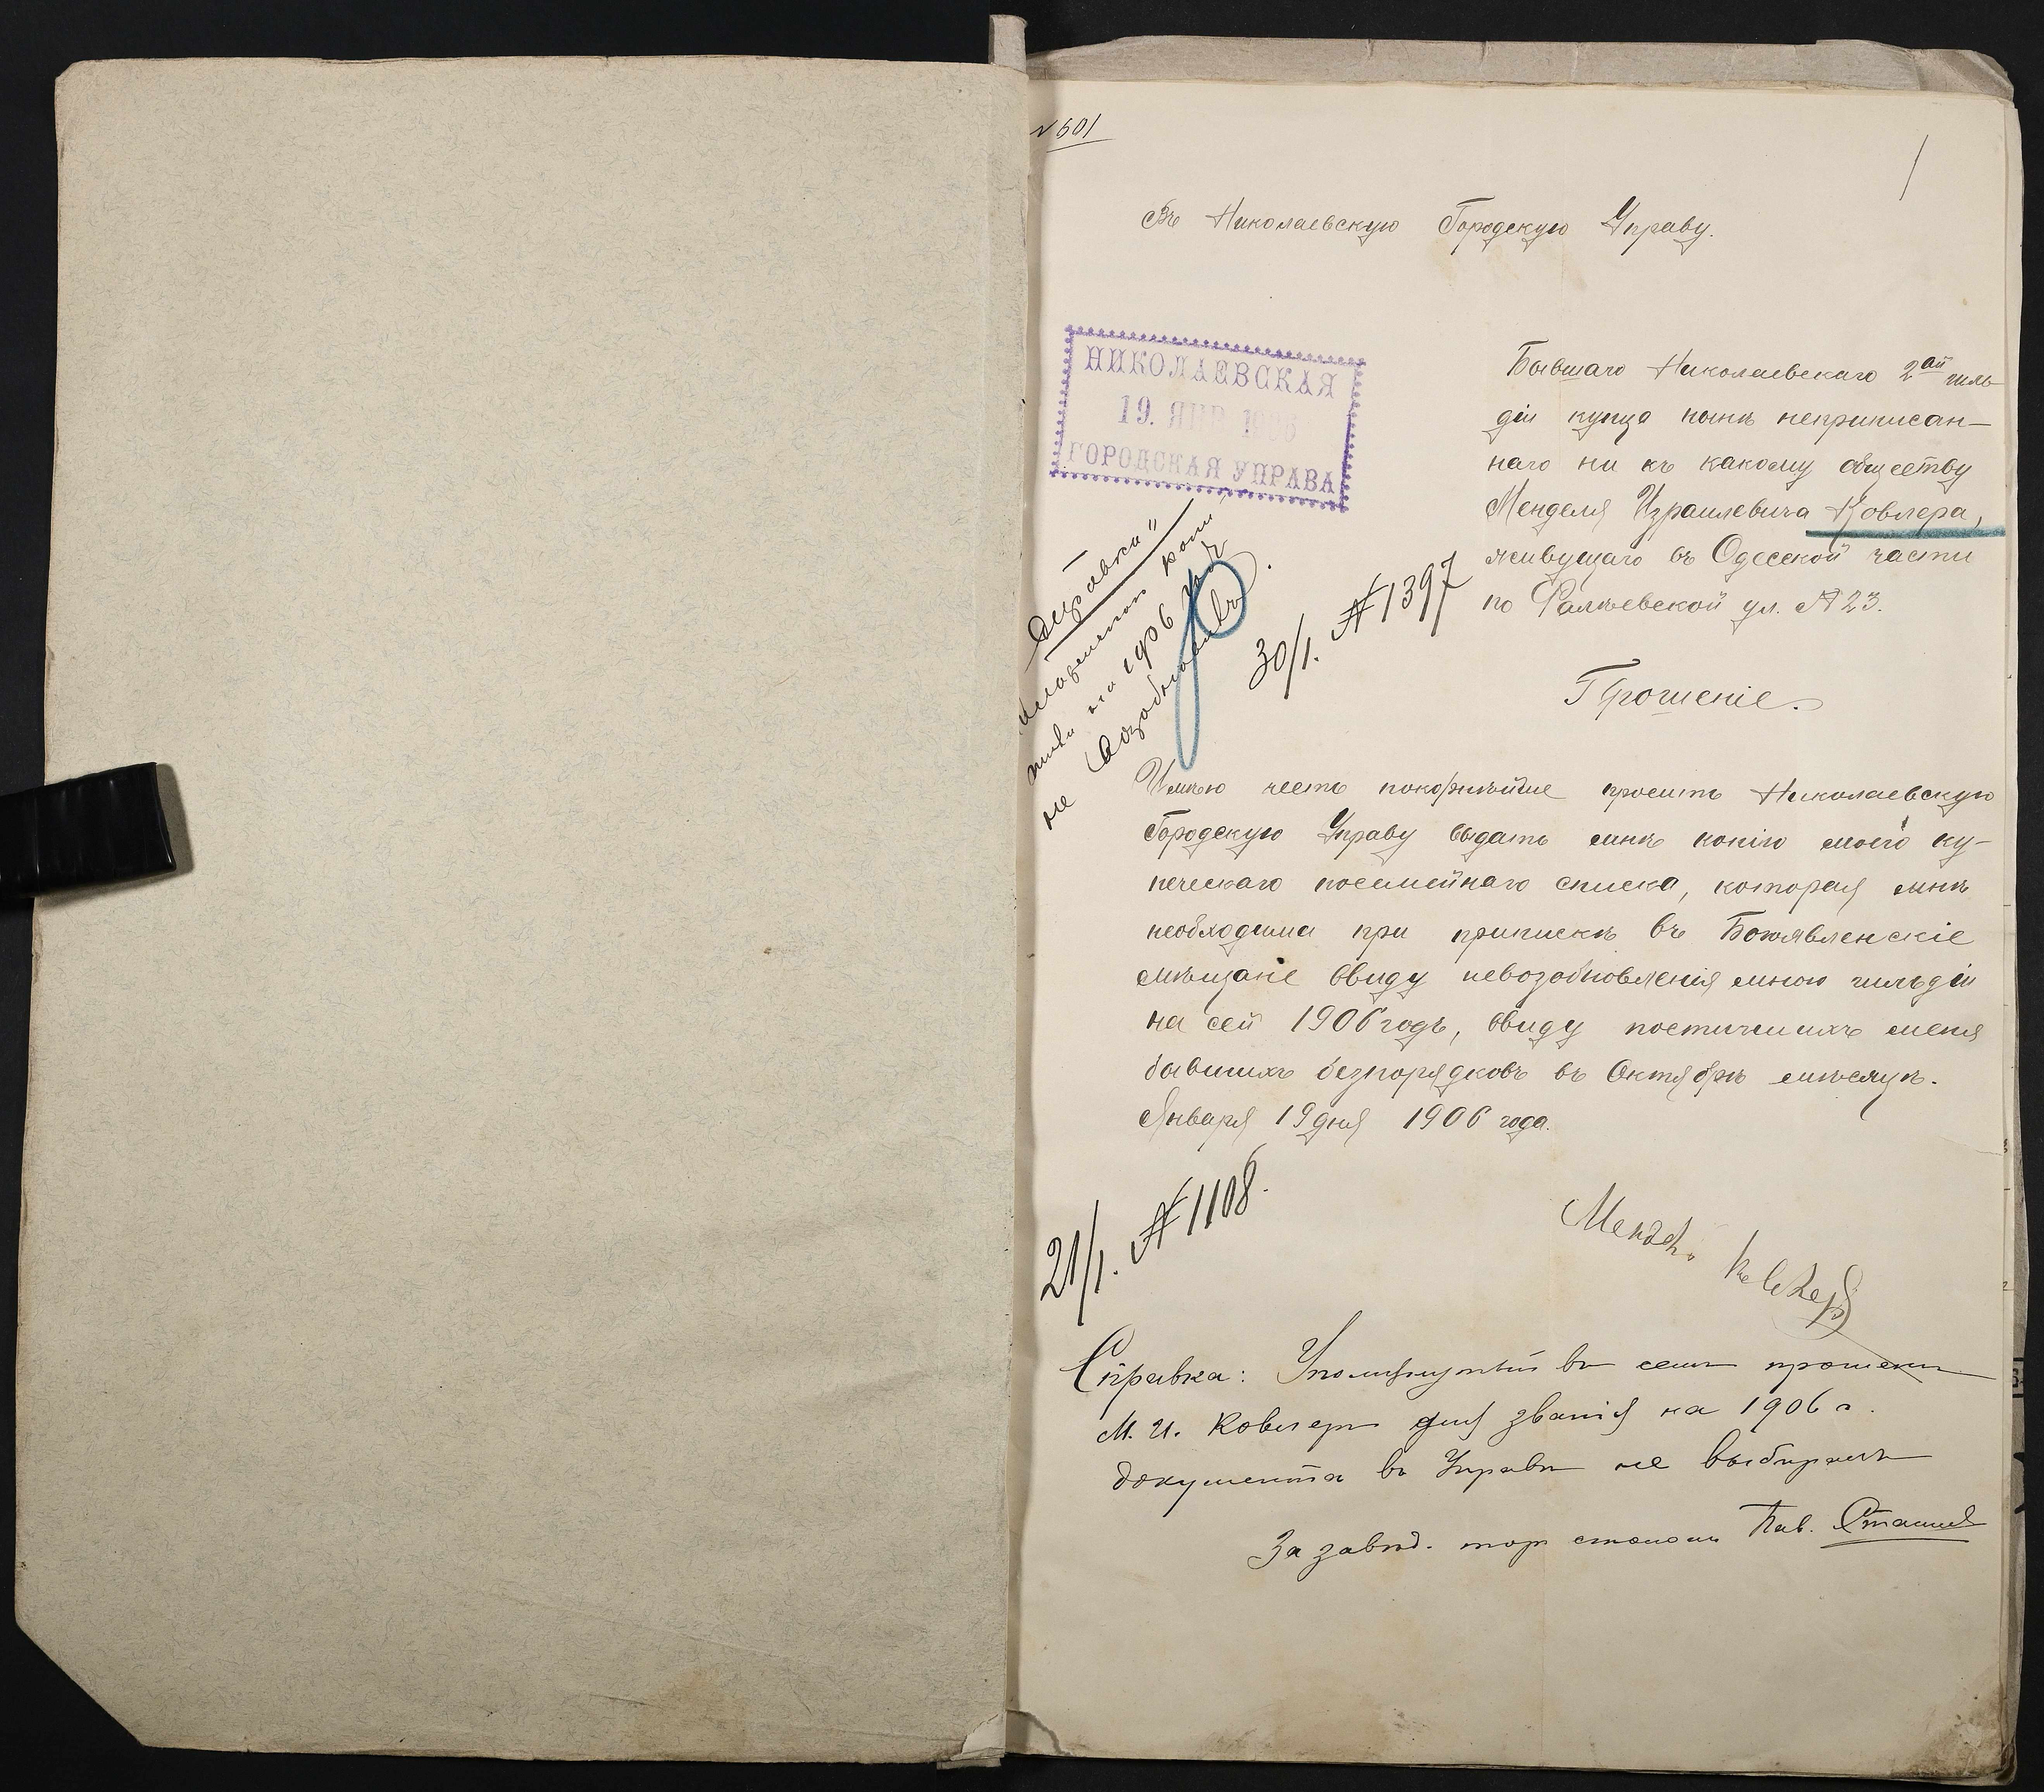 № 601
Въ Николаевскую Городскую Управу.
НИКОЛАЕВСКАЯ
19. ЯНВ 1906
ГОРОДСКАЯ УПРАВА
Бывшаго Николаевскаго 2ой гиль-
діи купца нынѣ неприписан-
наго ни къ какому обществу
Менделя Израилевича Ковлера,
живущаго въ Одесской части
по Фалѣевской ул. № 23.
на 1906 годъ
не возобновилъ.
30/1. № 1397
Прошеніе.
Имѣю честь покорнѣйше просить Николаевскую
Городскую Управу выдать мнѣ копію моего ку-
печескаго посемейнаго списка, которая мнѣ
необходима при припискѣ въ Богоявленскіе
мѣщане ввиду невозобновленія мною гильдіи
на сей 1906 годъ, ввиду постигшихъ меня
бывшихъ безпорядковъ въ Октябрѣ мѣсяцѣ.
Января 19 дня 1906 года.
21/1. № 1108.
Мендель Ковлеръ
Справка: Упомянутый въ семъ прошеніи
М. И. Ковлеръ для званія на 1906 г.
документа въ Управѣ не выбиралъ
За завѣд. торг столомъ Пав.